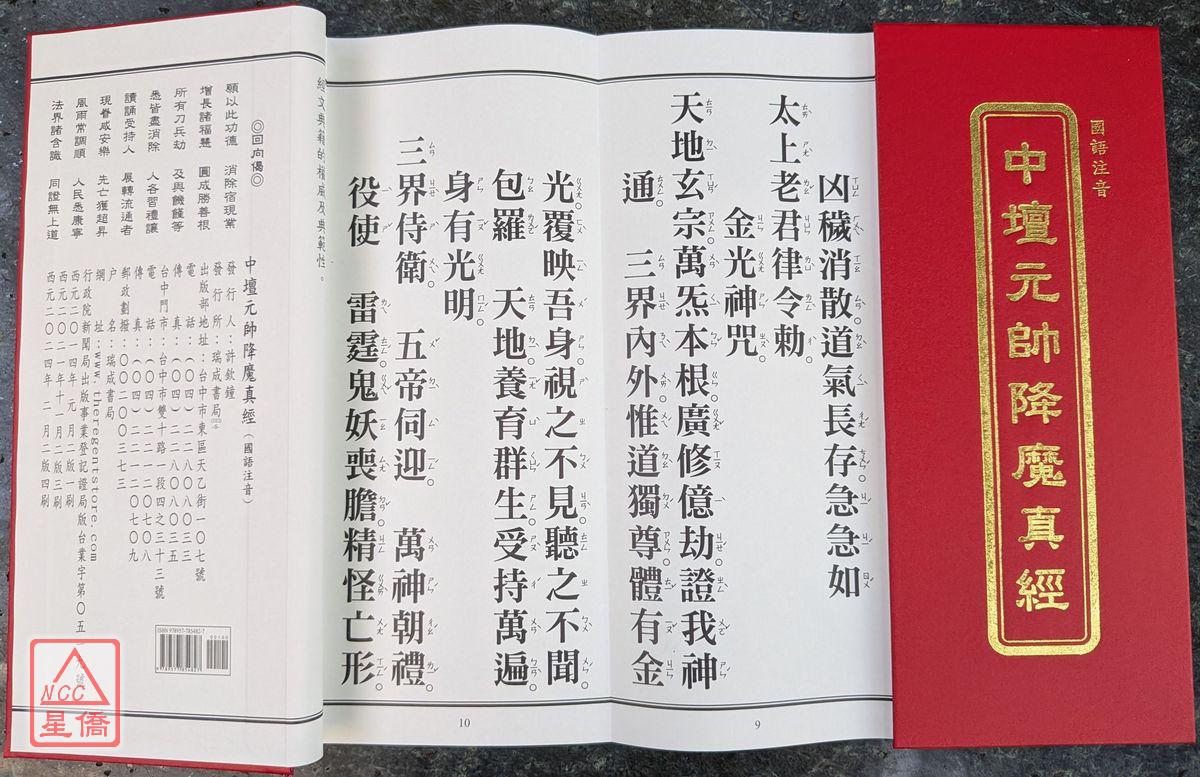 國語注音
中壇元帥降魔真經
凶穢消散道氣長存急急如
太上老君律令勅
金光神咒
天地玄宗萬炁本根廣修億劫證我神
通 三界內外惟道獨尊體有金
9
光覆映吾身視之不見聽之不聞
包羅 天地養育群生受持萬遍
身有光明
三界侍衛 五帝伺迎 萬神朝禮
役使 雷霆鬼妖喪膽精怪亡形
10
經文典籍的權威及典範性。
◎回向偈◎
願以此功德 消除宿現業
增長諸福慧 圓成勝善根
所有刀兵劫 及與饑饉等
悉皆盡消除 人各習禮讓
讀誦受持人 展轉流通者
現眷咸安樂 先亡獲超昇
風雨常調順 人民悉康寧
法界諸含識 同證無上道
中壇元帥降魔真經(國語注音)
發行人:許欽鐘
發行所:瑞成書局
出版部地址:台中市東區天乙街一〇七號
電話:(〇四)二二一二〇七〇八
台中門市:台中市雙十路一段四之三十三號
戶名:瑞成書局
網址:www.theregentstore.com
行政院新聞局出版事業登記證局版台業字第〇五
西元二〇二四年二月二版四刷
ISBN 978957-785482-7
00100
9789577854827
NCC
星僑